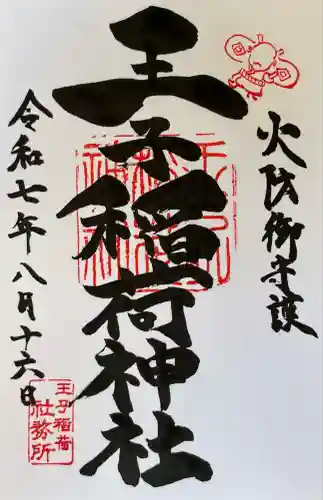 火防御守護
王子稲荷神社
令和七年八月十六日
王子稲荷
社務所